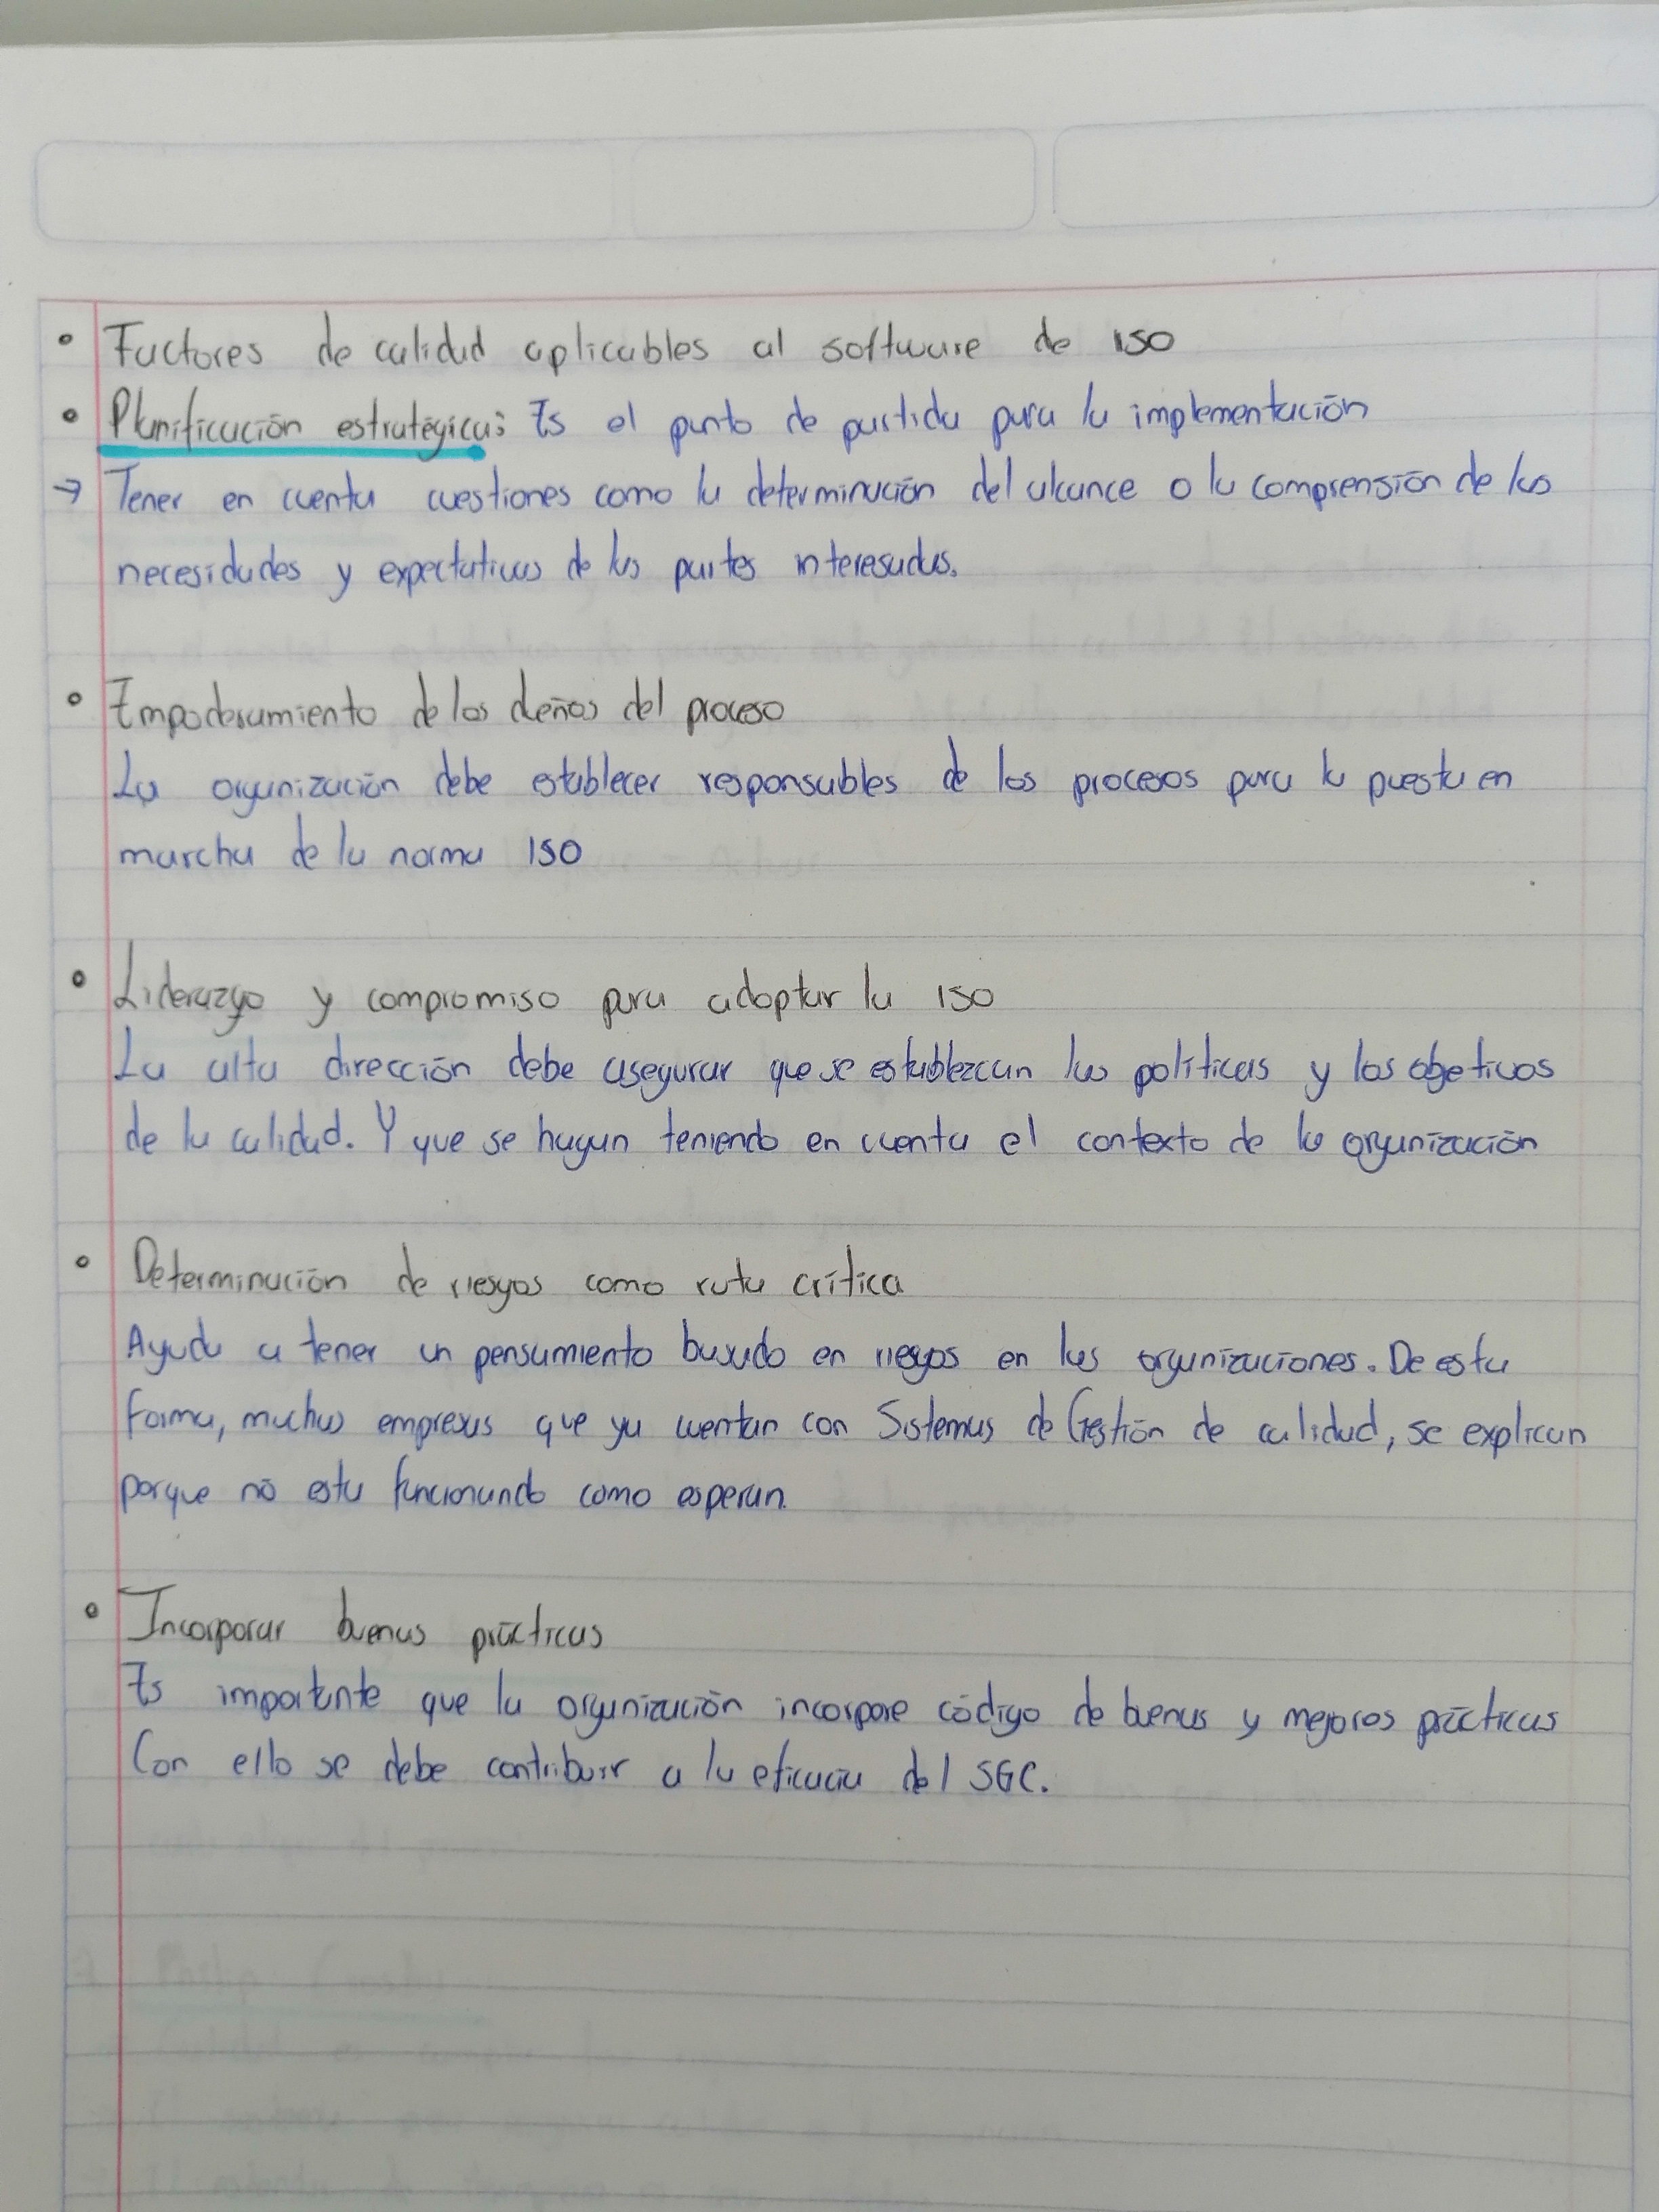 • Factores de calidad aplicables al software de ISO
• Planificación estratégica: Es el punto de partida para la implementación
→ Tener en cuenta cuestiones como la determinación del alcance o la comprensión de las
necesidades y expectativas de las partes interesadas.
• Empoderamiento de los deños del proceso
La organización debe establecer responsables de los procesos para la puesta en
marcha de la norma ISO
• Liderazgo y compromiso para adoptar la ISO
La alta dirección debe asegurar que se establezcan las políticas y los objetivos
de la calidad. Y que se hagan teniendo en cuenta el contexto de la organización
• Determinación de riesgos como ruta crítica
Ayuda a tener un pensamiento basado en riesgos en las organizaciones. De esta
forma, muchas empresas que ya cuentan con Sistemas de Gestión de calidad, se explican
porque no esta funcionando como esperan.
• Incorporar buenas prácticas
Es importante que la organización incorpore código de buenas y mejores prácticas
Con ello se debe contribuir a la eficacia del SGC.